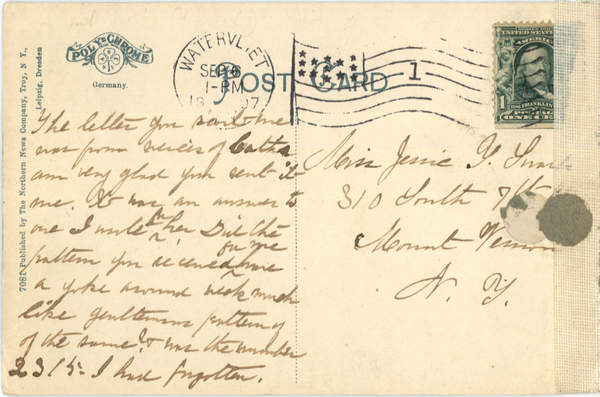 POLY-CHROME
Germany.
7081 Published by The Northern News Company, Troy, N. Y.,
Leipzig, Dresden
WATERVLIET
SEP
1-PM
07
POST CARD
1
ONE CENT
The letter you sent me
was from
am very glad you sent it
me. It was an answer to
one I wrote to her. Did the
pattern you received from me have
a yoke around neck much
like gentlemens pattern of
of the same? & was the number
2315- I had forgotten.
Miss Jessie Y.
310 South 7th
Mount Vernon
N. Y.